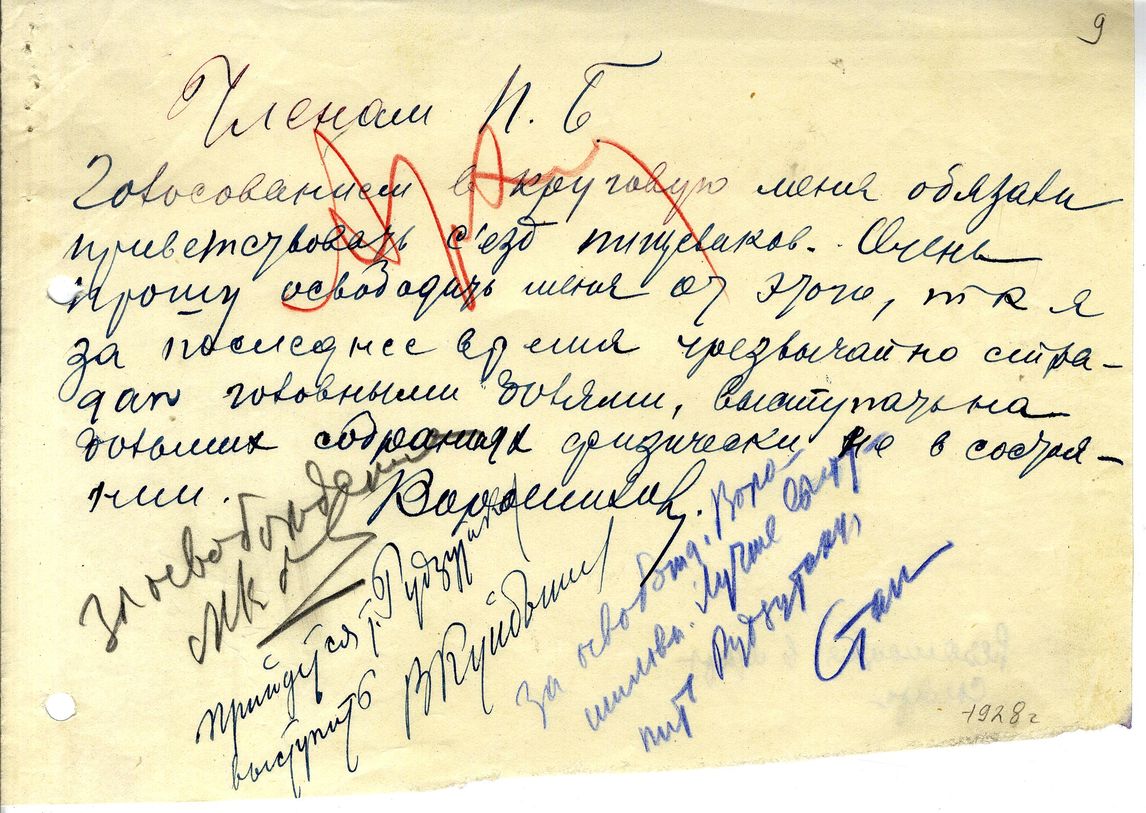 9
Членам П. Б.
Голосованием в круговую меня обязали
приветствовать с'езд пищевиков. Очень
прошу освободить меня от этого, т к я
за последнее время чрезвычайно стра-
даю головными болями, выступать на
больших собраниях физически не в состоя-
нии. Ворошилов.
за освобождение
МК
Прийдется т. Рудзутаку
выступить ВКуйбышев
За освобожд. Воро-
шилова. Лучше высту-
пить Рудзутаку,
Стал
1928 г